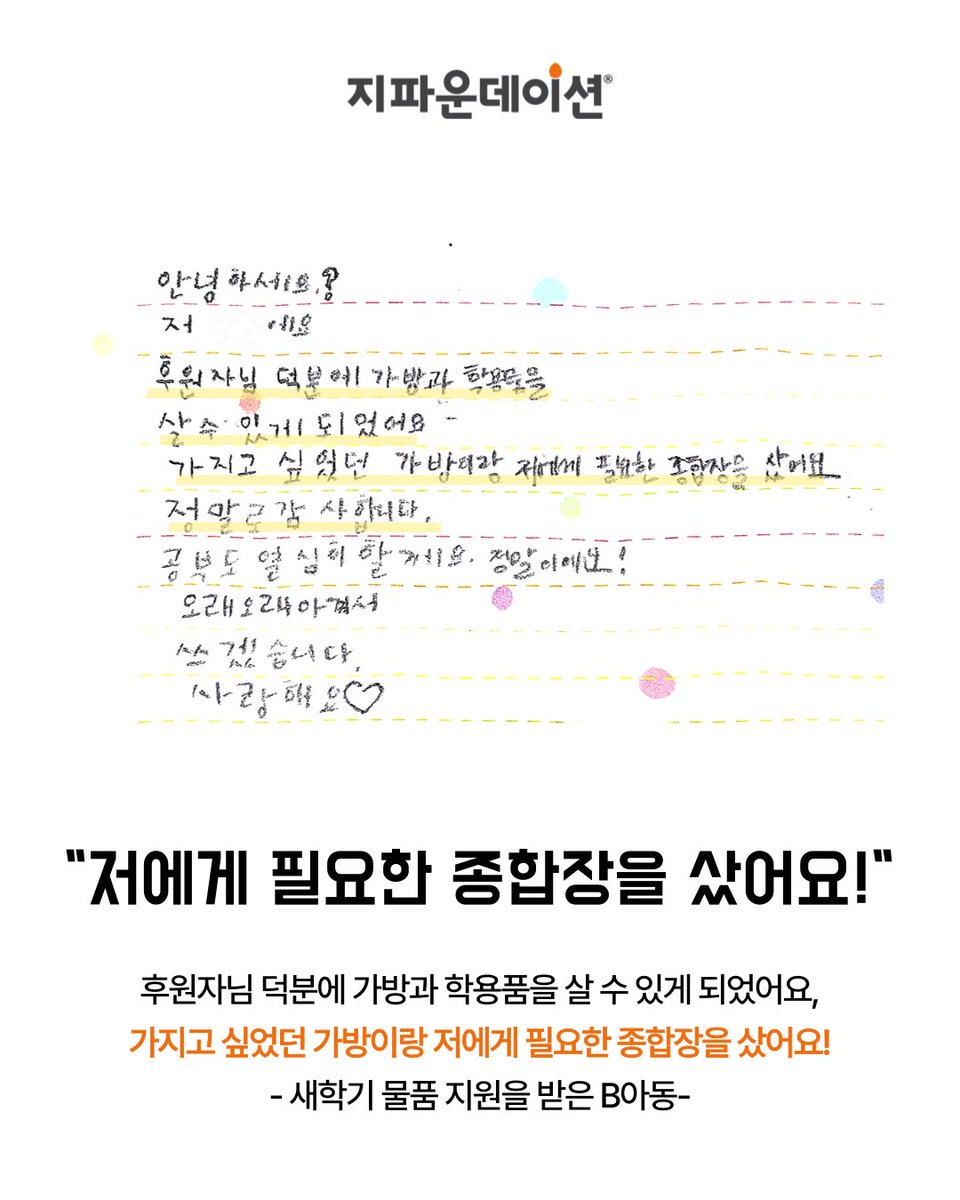 지파운데이션®
안녕하세요.?
저 에요
후원자님 덕분에 가방과 학용품을
살 수 있게 되었어요
가지고 싶었던 가방이랑 저에게 필요한 종합장을 샀어요
정말로 감사합니다.
공부도 열심히 할게요. 정말이에요!
오래오래 아껴서
쓰겠습니다.
사랑해요♡
"저에게 필요한 종합장을 샀어요!"
후원자님 덕분에 가방과 학용품을 살 수 있게 되었어요,
가지고 싶었던 가방이랑 저에게 필요한 종합장을 샀어요!
- 새학기 물품 지원을 받은 B아동-